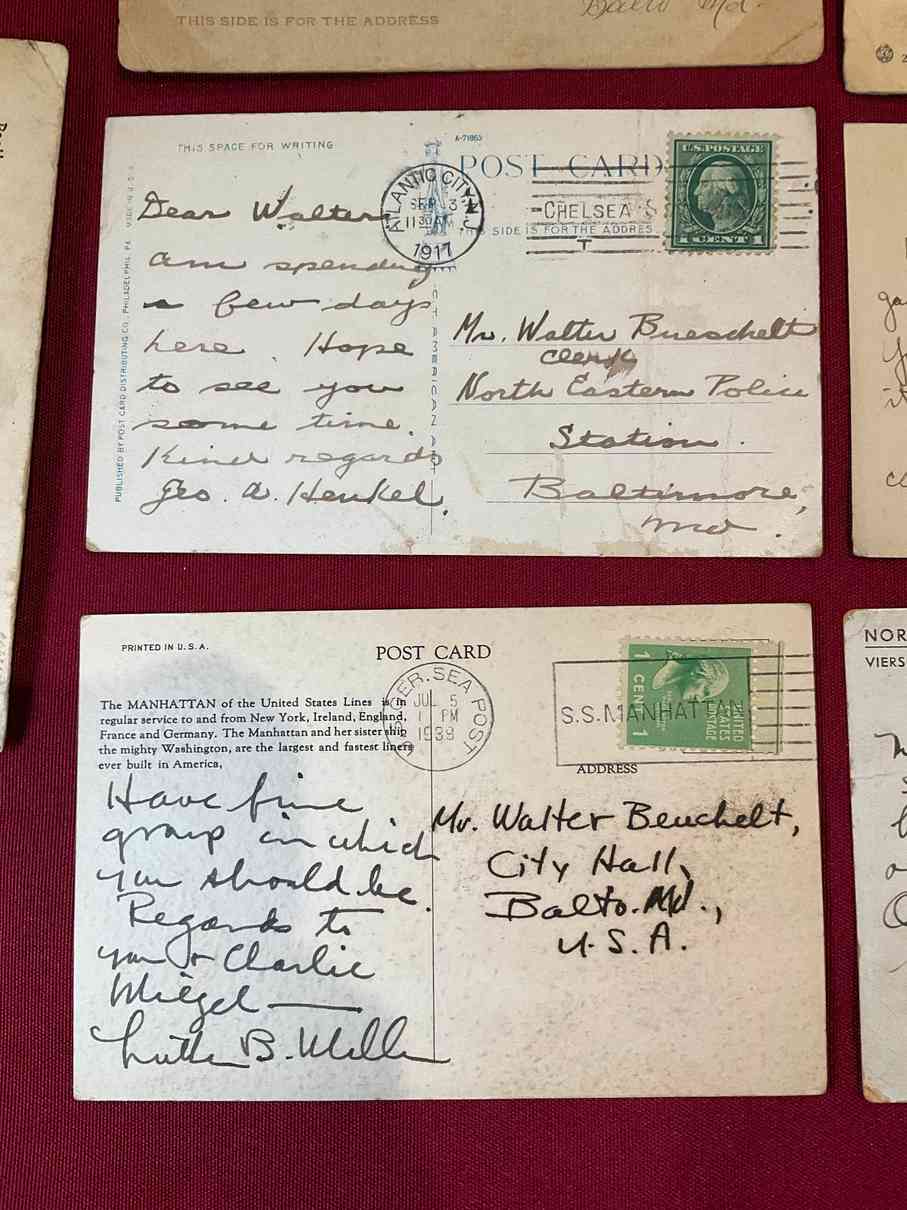 THIS SIDE IS FOR THE ADDRESS
Balto Md.
THIS SPACE FOR WRITING
A-71953
POST CARD
THIS SIDE IS FOR THE ADDRES
PUBLISHED BY POST CARD DISTRIBUTING CO., PHILADELPHIA, PA. MADE IN U.S.A.
ATLANTIC CITY, N.J.
SEP 3
11 30 AM
1917
CHELSEA S
T
U.S. POSTAGE
1 CENT 1
Dear Walter
am spending
a few days
here. Hope
to see you
some time.
Kind regards
Geo. A. Henkel.
Mr. Walter Bueschelt
Clerk
North Eastern Police
Station.
Baltimore,
Md.
PRINTED IN U.S.A.
POST CARD
The MANHATTAN of the United States Lines is in
regular service to and from New York, Ireland, England,
France and Germany. The Manhattan and her sister ship
the mighty Washington, are the largest and fastest liners
ever built in America,
GER. SEA POST
JUL 5
1 PM
1939
S.S. MANHATTAN
UNITED
STATES
POSTAGE
1 CENT 1
ADDRESS
Have fine
group in which
you should be.
Regards to
you + Charlie
Miegel —
Luther B. Miller
Mr. Walter Beuchelt,
City Hall,
Balto. Md.,
U.S.A.
NOR
VIERS